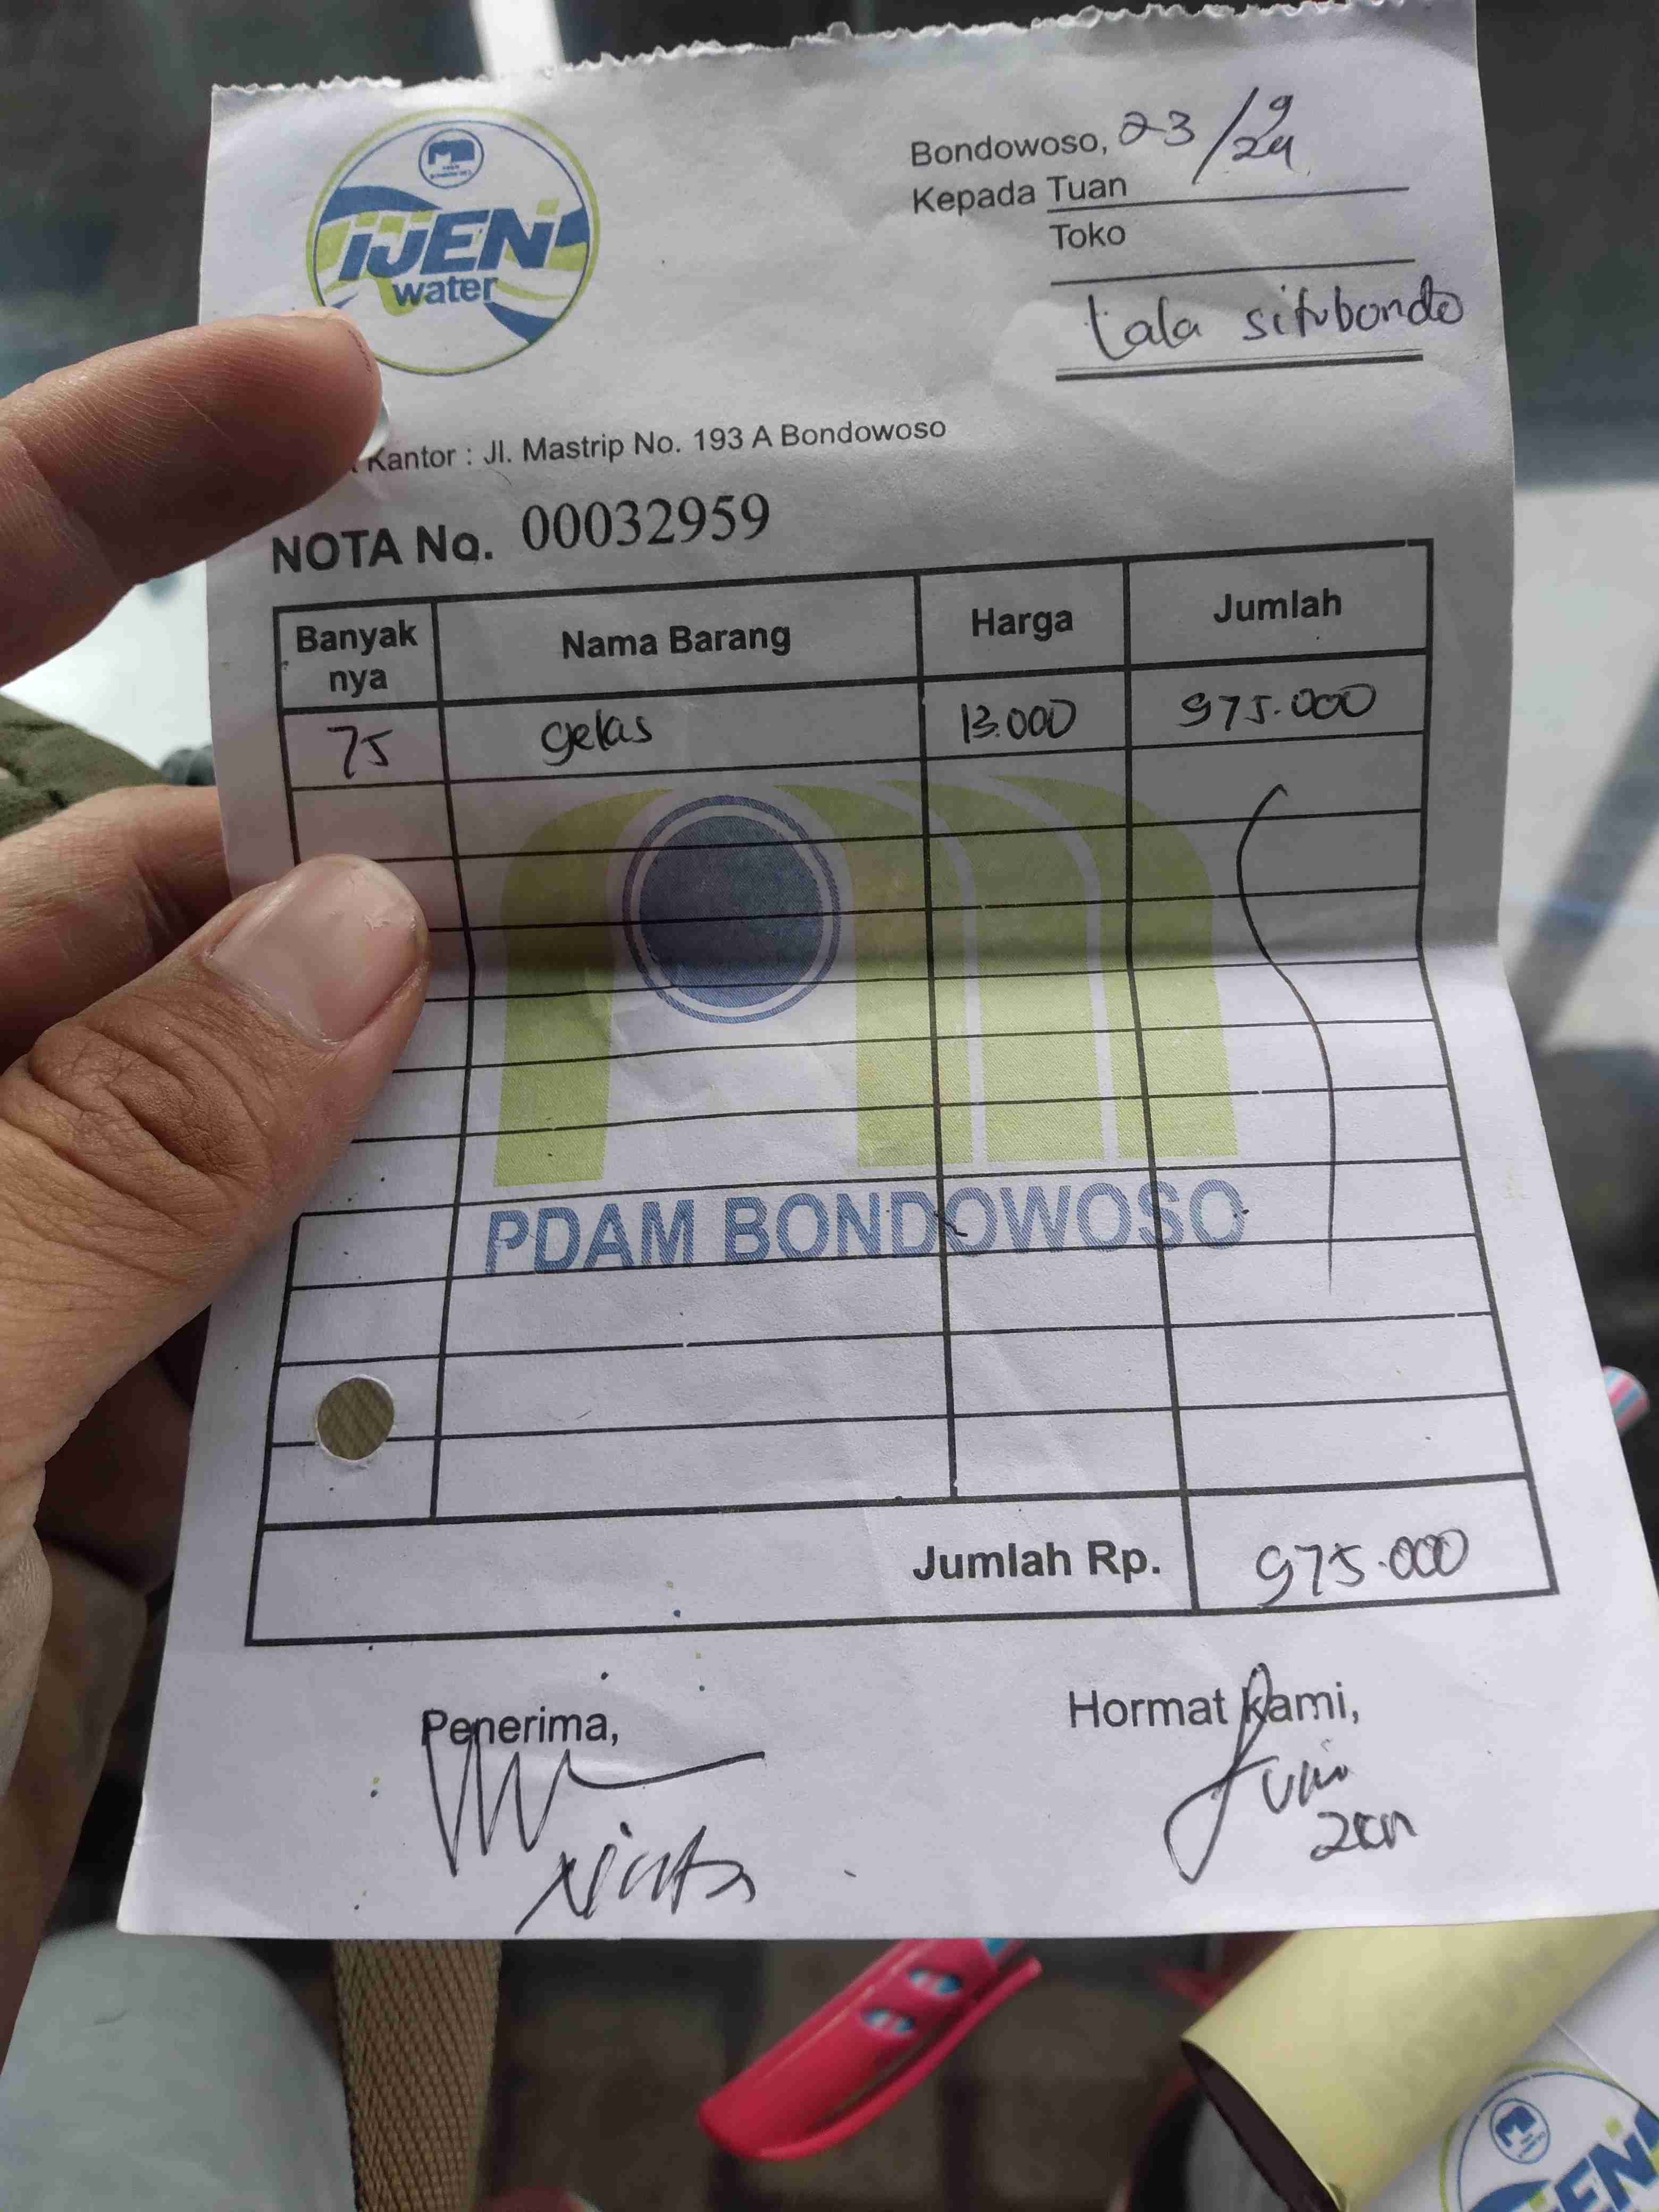 IJEN
water
Bondowoso, 23/9/24
Kepada Tuan
Toko
tala situbondo
Kantor : Jl. Mastrip No. 193 A Bondowoso
NOTA No. 00032959
Banyak nya Nama Barang Harga Jumlah
75 gelas 13.000 975.000
PDAM BONDOWOSO
Jumlah Rp. 975.000
Penerima, Hormat Kami,